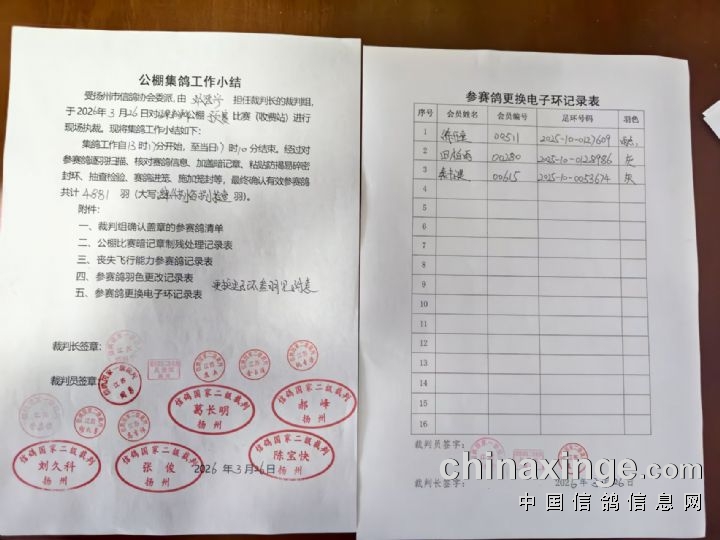 公棚集鸽工作小结
受扬州市信鸽协会委派,由 担任裁判长的裁判组,
于2026年3月26日对 公棚 比赛(收费站)进行
现场执裁。现将集鸽工作小结如下:
集鸽工作自13时 分开始,至当日 时10分结束。经过对
参赛鸽逐羽扫描、核对赛鸽信息、加盖暗记章、粘贴防揭易碎密
封环、抽查检验、赛鸽进笼、施加笼封等,最终确认有效参赛鸽
共计4881羽(大写 羽)。
附件:
一、裁判组确认盖章的参赛鸽清单
二、公棚比赛暗记章制残处理记录表
三、丧失飞行能力参赛鸽记录表
四、参赛鸽羽色更改记录表
五、参赛鸽更换电子环记录表
裁判长签章:
裁判员签章:
信鸽国家二级裁判
葛长明
扬州
信鸽国家二级裁判
郝峰
扬州
信鸽国家二级裁判
刘久科
扬州
信鸽国家二级裁判
张俊
扬州
信鸽国家二级裁判
陈宝快
扬州
2026年3月26日
参赛鸽更换电子环记录表
序号 会员姓名 会员编号 足环号码 羽色
1 00511 2025-10-0127609
2 00280 2025-10-0128986 灰
3 00615 2025-10-0053674 灰
4
5
6
7
8
9
10
11
12
13
14
15
16
裁判员签字:
裁判长签字:
2026年3月26日
chinaxinge.com
中国信鸽信息网